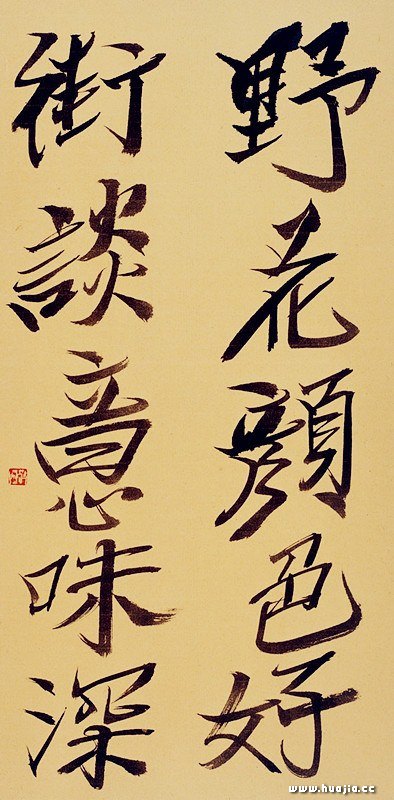 野花顔色好
街談意味深
www.huajia.cc